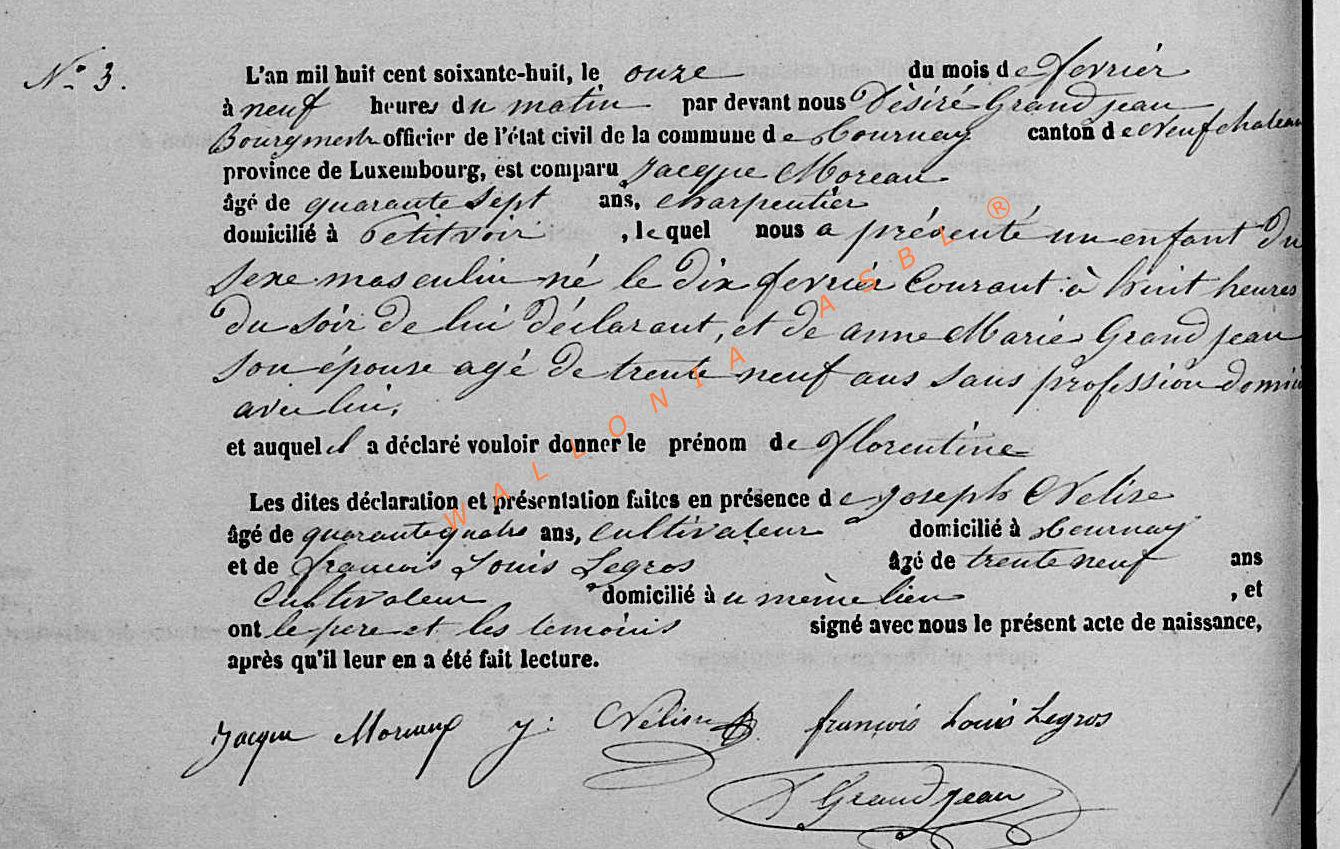 N° 3.
L'an mil huit cent soixante-huit, le onze du mois de fevrier
à neuf heures du matin par devant nous Désiré Grandjean
Bourgmestre officier de l'état civil de la commune de Tournay canton de Neufchateau
province de Luxembourg, est comparu Jacque Moreau
âgé de quarante sept ans, charpentier
domicilié à Petitvoir, lequel nous a présenté un enfant du
sexe masculin né le dix fevrier courant à huit heures
du soir de lui déclarant, et de anne Marie Grandjean
son épouse agé de trente neuf ans sans profession domici
avec lui,
et auquel il a déclaré vouloir donner le prénom de florentine
Les dites déclaration et présentation faites en présence de Joseph Nelise
âgé de quarante quatre ans, cultivateur domicilié à Tournay
et de francois Louis Legros âgé de trente neuf ans
cultivateur domicilié au même lieu, et
ont le pere et les temoins signé avec nous le présent acte de naissance,
après qu'il leur en a été fait lecture.
Jacque Moreau J: Nélise françois Louis Legros
D Grandjean
WALLONIA ASBL ®